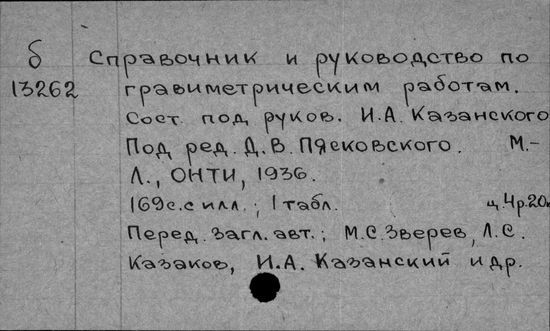 б Справочник и руководство по
13262 гравиметрическим работам.
Сост. под руков. И.А. Казанского
Под ред. Д.В. Пясковского. М.-
Л., ОНТИ, 1936.
169с. с илл.; 1 табл. ц. 4р.20к
Перед загл. авт.: М.С. Зверев, Л.С.
Казаков, И.А. Казанский и др.